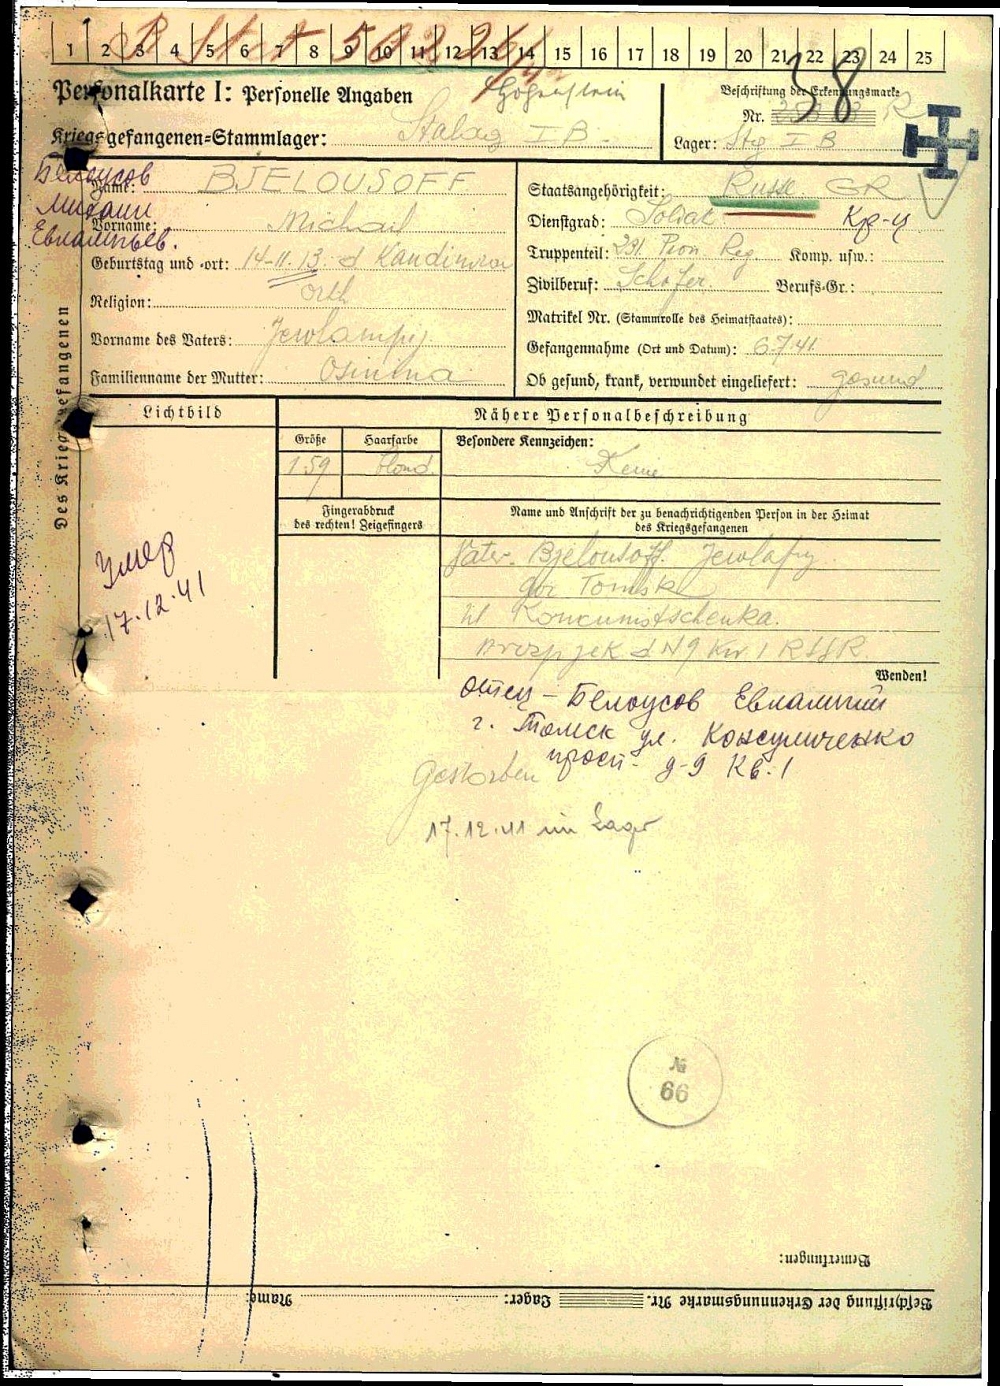 1 2 3 4 5 6 7 8 9 10 11 12 13 14 15 16 17 18 19 20 21 22 23 24 25
Personalkarte I: Personelle Angaben
Hohenstein
Beschriftung der Erkennungsmarke
Nr.
38
Kriegsgefangenen-Stammlager: Stalag I B
Lager: Stlg I B
Белоусов
Михаил
Name: BJELOUSOFF
Vorname: Michail
Geburtstag und -ort: 14.11.13. d Kandinka
Religion: orth
Vorname des Vaters: Jewlampij
Familienname der Mutter: Osinina
Staatsangehörigkeit: Russe GR
Dienstgrad: Soldat Кр-ц
Truppenteil: 231. Pion. Reg. Komp. usw.:
Zivilberuf: Schofer Berufs-Gr.:
Matrikel Nr. (Stammrolle des Heimatstaates):
Gefangennahme (Ort und Datum): 6.7.41.
Ob gesund, krank, verwundet eingeliefert: gesund
Des Kriegsgefangenen
Lichtbild
Nähere Personalbeschreibung
Größe Haarfarbe Besondere Kennzeichen:
159 blond. Keine
Fingerabdruck
des rechten! Zeigefingers
Name und Anschrift der zu benachrichtigenden Person in der Heimat
des Kriegsgefangenen
Vater. Bjelousoff
gor Tomsk
Ul
Умер
17.12.41
Wenden!
отец - Белоусов Евлампий
г. Томск ул.
просп- д-9 кв. 1
Gestorben
17.12.41 im Lager
№
66
Bemerkungen:
Beschriftung der Erkennungsmarke Nr. Lager: Name: